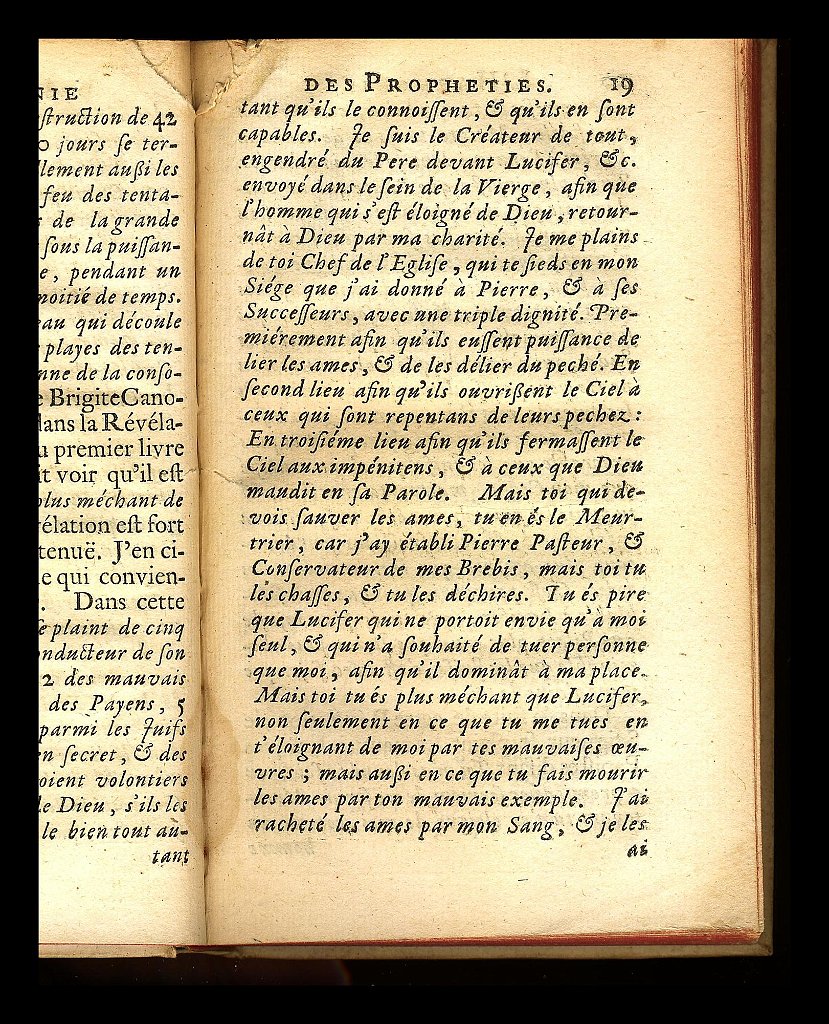 NIE
struction de 42
0 jours se ter-
llement aussi les
feu des tenta-
de la grande
sous la puissan-
e, pendant un
moitié de temps.
eau qui découle
playes des ten-
nne de la conso-
e Brigite Cano-
dans la Révéla-
u premier livre
it voir qu'il est
plus méchant de
vélation est fort
tenuë. J'en ci-
e qui convien-
. Dans cette
se plaint de cinq
onducteur de son
2 des mauvais
des Payens, 5
parmi les Juifs
en secret, & des
oient volontiers
de Dieu, s'ils les
le bien tout au-
tant
DES PROPHETIES. 19
tant qu'ils le connoissent, & qu'ils en sont
capables. Je suis le Créateur de tout,
engendré du Pere devant Lucifer, &c.
envoyé dans le sein de la Vierge, afin que
l'homme qui s'est éloigné de Dieu, retour-
nât à Dieu par ma charité. Je me plains
de toi Chef de l'Eglise, qui te sieds en mon
Siége que j'ai donné à Pierre, & à ses
Successeurs, avec une triple dignité. Pre-
miérement afin qu'ils eussent puissance de
lier les ames, & de les délier du peché. En
second lieu afin qu'ils ouvrissent le Ciel à
ceux qui sont repentans de leurs pechez:
En troisiéme lieu afin qu'ils fermassent le
Ciel aux impénitens, & à ceux que Dieu
maudit en sa Parole. Mais toi qui de-
vois sauver les ames, tu en és le Meur-
trier, car j'ay établi Pierre Pasteur, &
Conservateur de mes Brebis, mais toi tu
les chasses, & tu les déchires. Tu és pire
que Lucifer qui ne portoit envie qu'à moi
seul, & qui n'a souhaité de tuer personne
que moi, afin qu'il dominât à ma place.
Mais toi tu és plus méchant que Lucifer,
non seulement en ce que tu me tues en
t'éloignant de moi par tes mauvaises œu-
vres; mais aussi en ce que tu fais mourir
les ames par ton mauvais exemple. J'ai
racheté les ames par mon Sang, & je les
ai